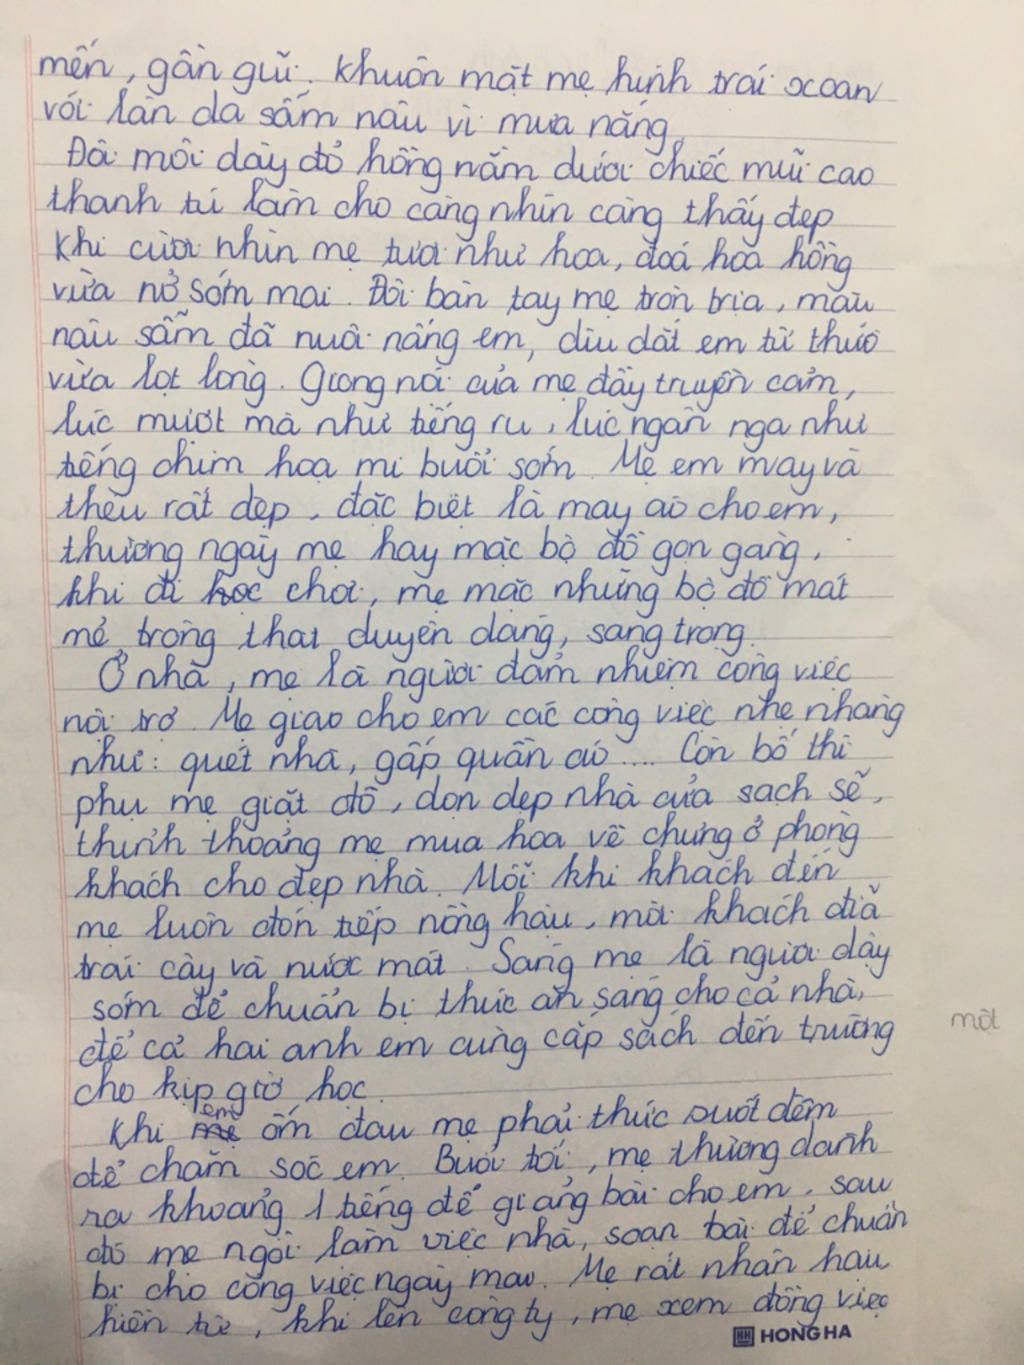 mến, gần gũi. Khuôn mặt mẹ hình trái xoan
với làn da sẫm nâu vì mưa nắng.
Đôi môi dày đỏ hồng nằm dưới chiếc mũi cao
thanh tú làm cho càng nhìn càng thấy đẹp
Khi cười nhìn mẹ tươi như hoa, đoá hoa hồng
vừa nở sớm mai. Đôi bàn tay mẹ tròn trịa, màu
nâu sẫm đã nuôi nấng em, dìu dắt em từ thuở
vừa lọt lòng. Giọng nói của mẹ đầy truyền cảm,
lúc mượt mà như tiếng ru, lúc ngân nga như
tiếng chim hoạ mi buổi sớm. Mẹ em may và
thêu rất đẹp, đặc biệt là may áo cho em,
thường ngày mẹ hay mặc bộ đồ gọn gàng,
khi đi học chơi, mẹ mặc những bộ đồ mát
mẻ trông thật duyên dáng, sang trọng.
Ở nhà, mẹ là người đảm nhiệm công việc
nội trợ. Mẹ giao cho em các công việc nhẹ nhàng
như: quét nhà, gấp quần áo.... Còn bố thì
phụ mẹ giặt đồ, dọn dẹp nhà cửa sạch sẽ,
thỉnh thoảng mẹ mua hoa về chưng ở phòng
khách cho đẹp nhà. Mỗi khi khách đến
mẹ luôn đón tiếp nồng hậu, mời khách đĩa
trái cây và nước mát. Sáng mẹ là người dậy
sớm để chuẩn bị thức ăn sáng cho cả nhà,
để cả hai anh em cùng cắp sách đến trường
một
cho kịp giờ học.
Khi mẹ em ốm đau mẹ phải thức suốt đêm
để chăm sóc em. Buổi tối, mẹ thường dành
ra khoảng 1 tiếng để giảng bài cho em, sau
đó mẹ ngồi làm việc nhà, soạn bài để chuẩn
bị cho công việc ngày mai. Mẹ rất nhân hậu
hiền từ, khi lên công ty, mẹ xem đồng việc
HH HONG HA